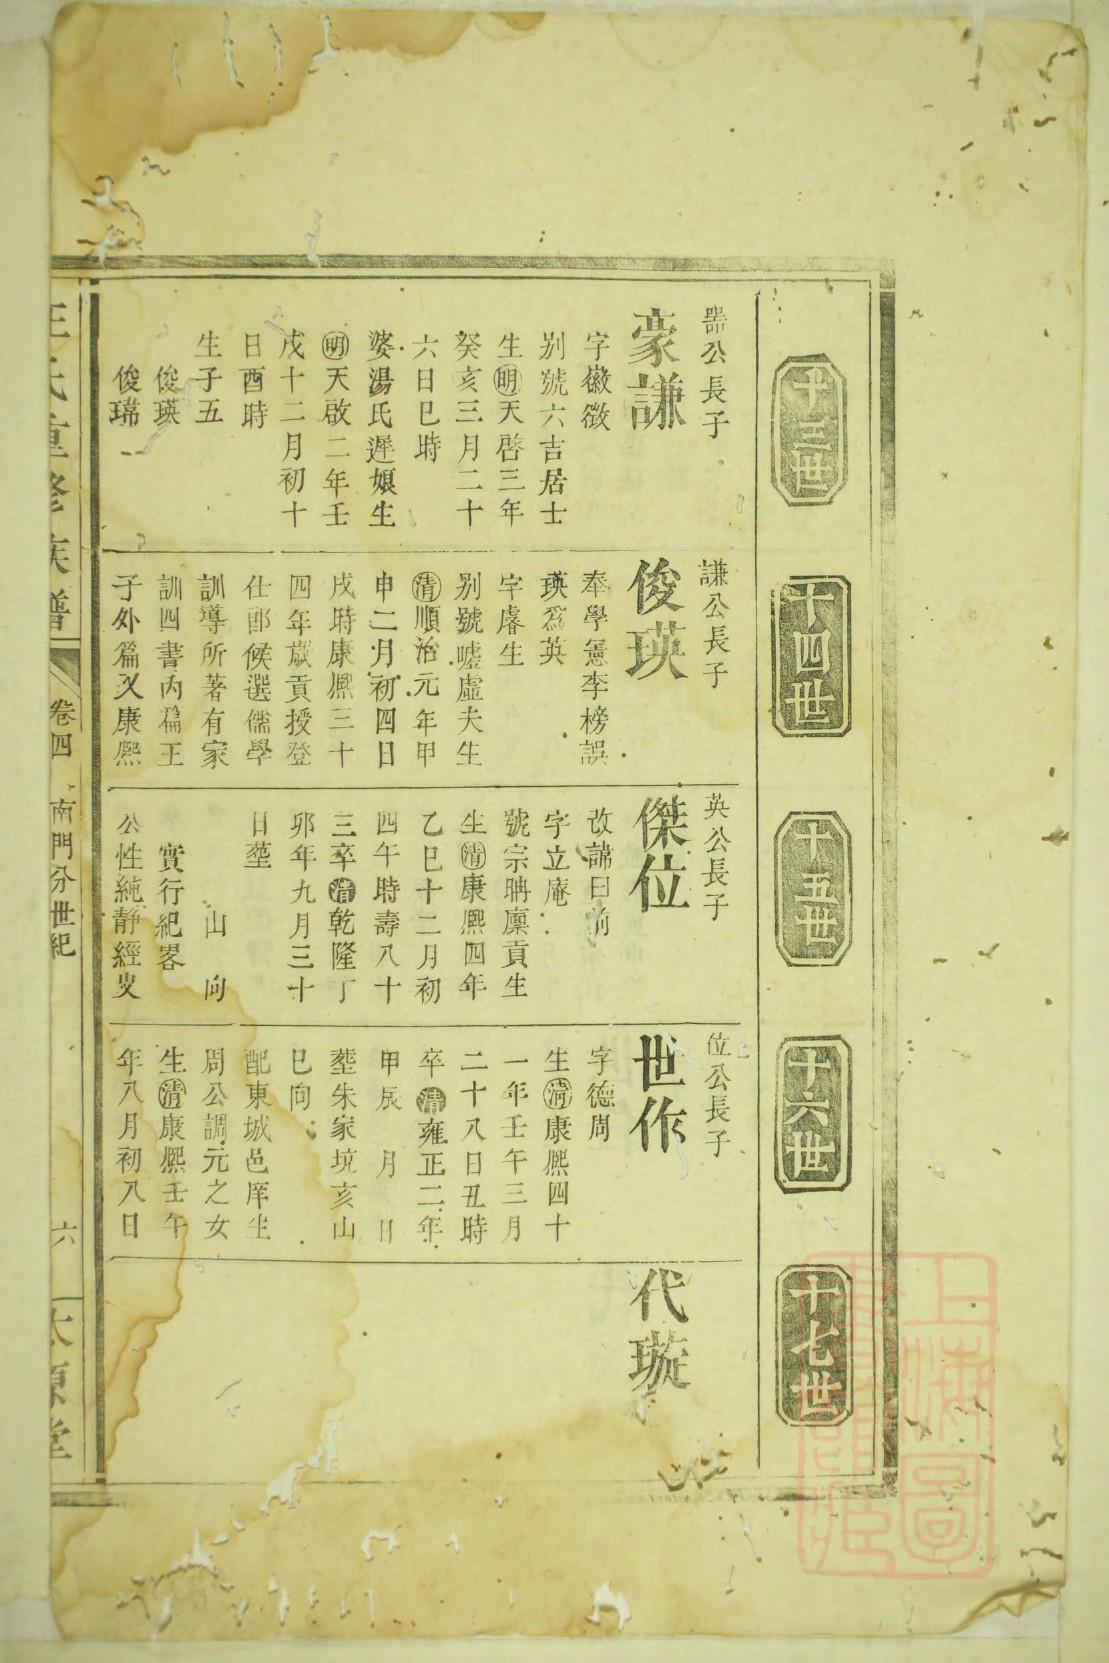 十三世
十四世
十五世
十六世
十七世
公長子
豪謙
字徽徵
别號六吉居士
生明天啓三年
癸亥三月二十
六日巳時
婆湯氏遲娘生
明天啟二年壬
戌十二月初十
日酉時
生子五
俊瑛
俊瑞
謙公長子
俊瑛
奉學憲李榜誤
瑛爲英
字睿生
别號嘘虛夫生
清順治元年甲
申二月初四日
戌時康熙三十
四年歲貢授登
仕郎候選儒學
訓導所著有家
訓四書丙篇王
子外篇又康熙
英公長子
傑位
改諱曰前
字立庵
號宗聃廪貢生
生清康熙四年
乙巳十二月初
四午時壽八十
三卒清乾隆丁
卯年九月三十
日塟
山 向
實行紀畧
公性純静經史
位公長子
世作
字德周
生清康熙四十
一年壬午三月
二十八日丑時
卒清雍正二年
甲辰 月 日
塟朱家境亥山
巳向
配東城邑庠生
周公調元之女
生清康熙壬午
年八月初八日
代璇
王氏重修族譜
卷四
南門分世紀
六
太原堂
上海圖